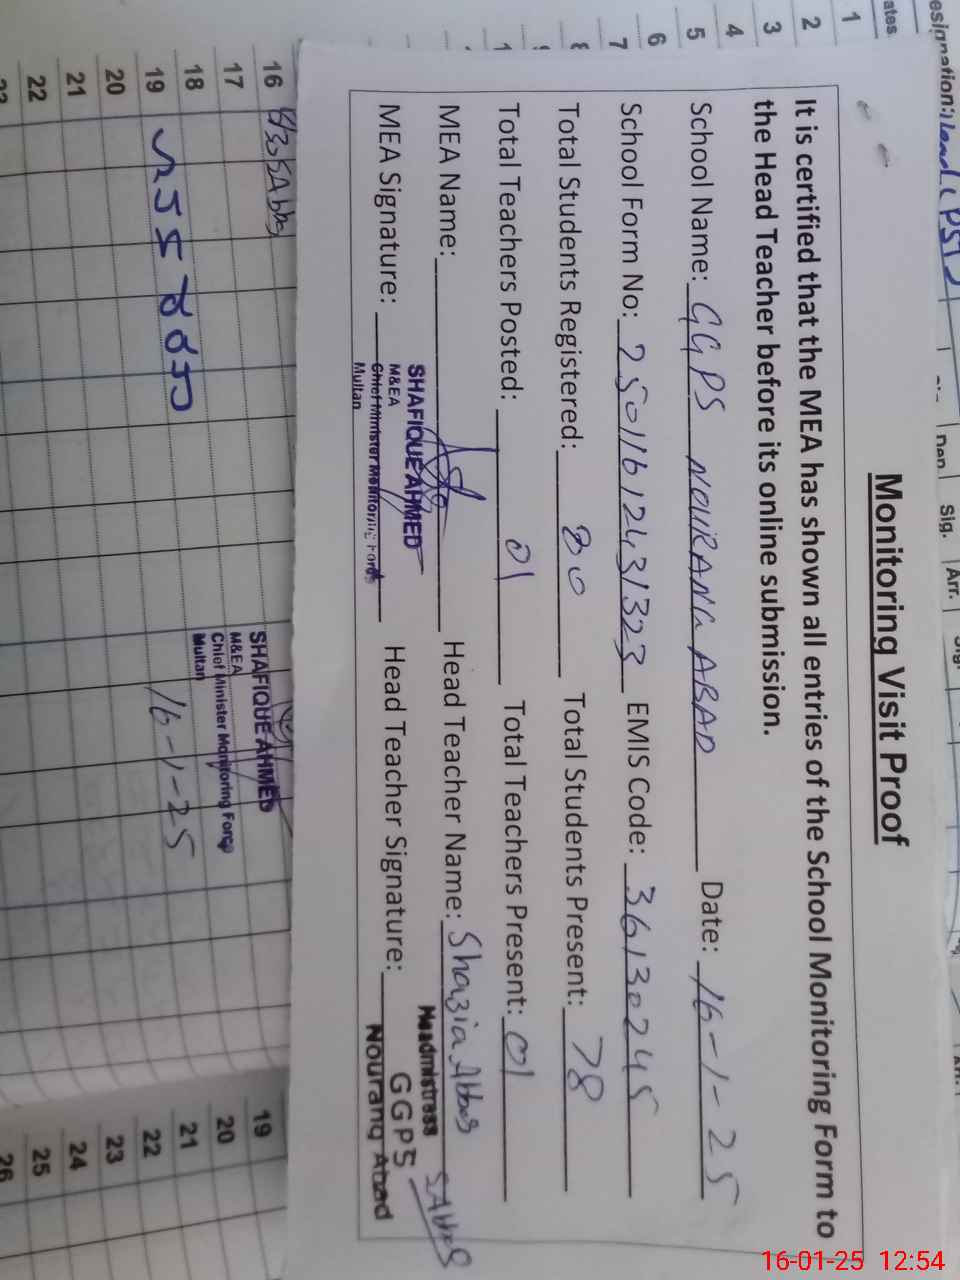 Monitoring Visit Proof
It is certified that the MEA has shown all entries of the School Monitoring Form to
the Head Teacher before its online submission.
School Name: GGPS NOURANG ABAD Date: 16-1-25
School Form No: 25011612431323 EMIS Code: 36130245
Total Students Registered: 80 Total Students Present: 78
Total Teachers Posted: 01 Total Teachers Present: 01
MEA Name: Head Teacher Name: Shazia Abbas
SHAFIQUE AHMED
M&EA
Chief Minister Monitoring Force
Multan
MEA Signature: Head Teacher Signature: SAbbas
Headmistress
GGPS
Nourang Abad
1
2
3
4
5
6
7
16
17
18
19
20
21
22
SHAFIQUE AHMED
M&EA
Chief Minister Monitoring Force
Multan
16-1-25
19
20
21
22
23
24
25
26
Sig.
Arr.
Dep.
16-01-25 12:54